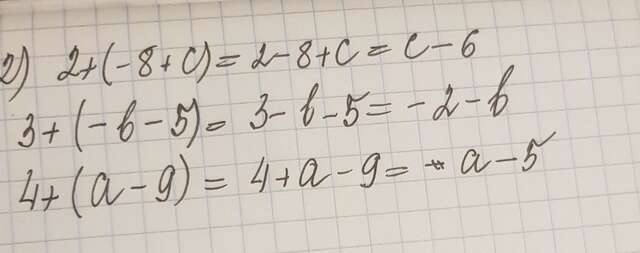 2) 2+(-8+c)=2-8+c=c-6
3+(-b-5)=3-b-5=-2-b
4+(a-9)=4+a-9=a-5